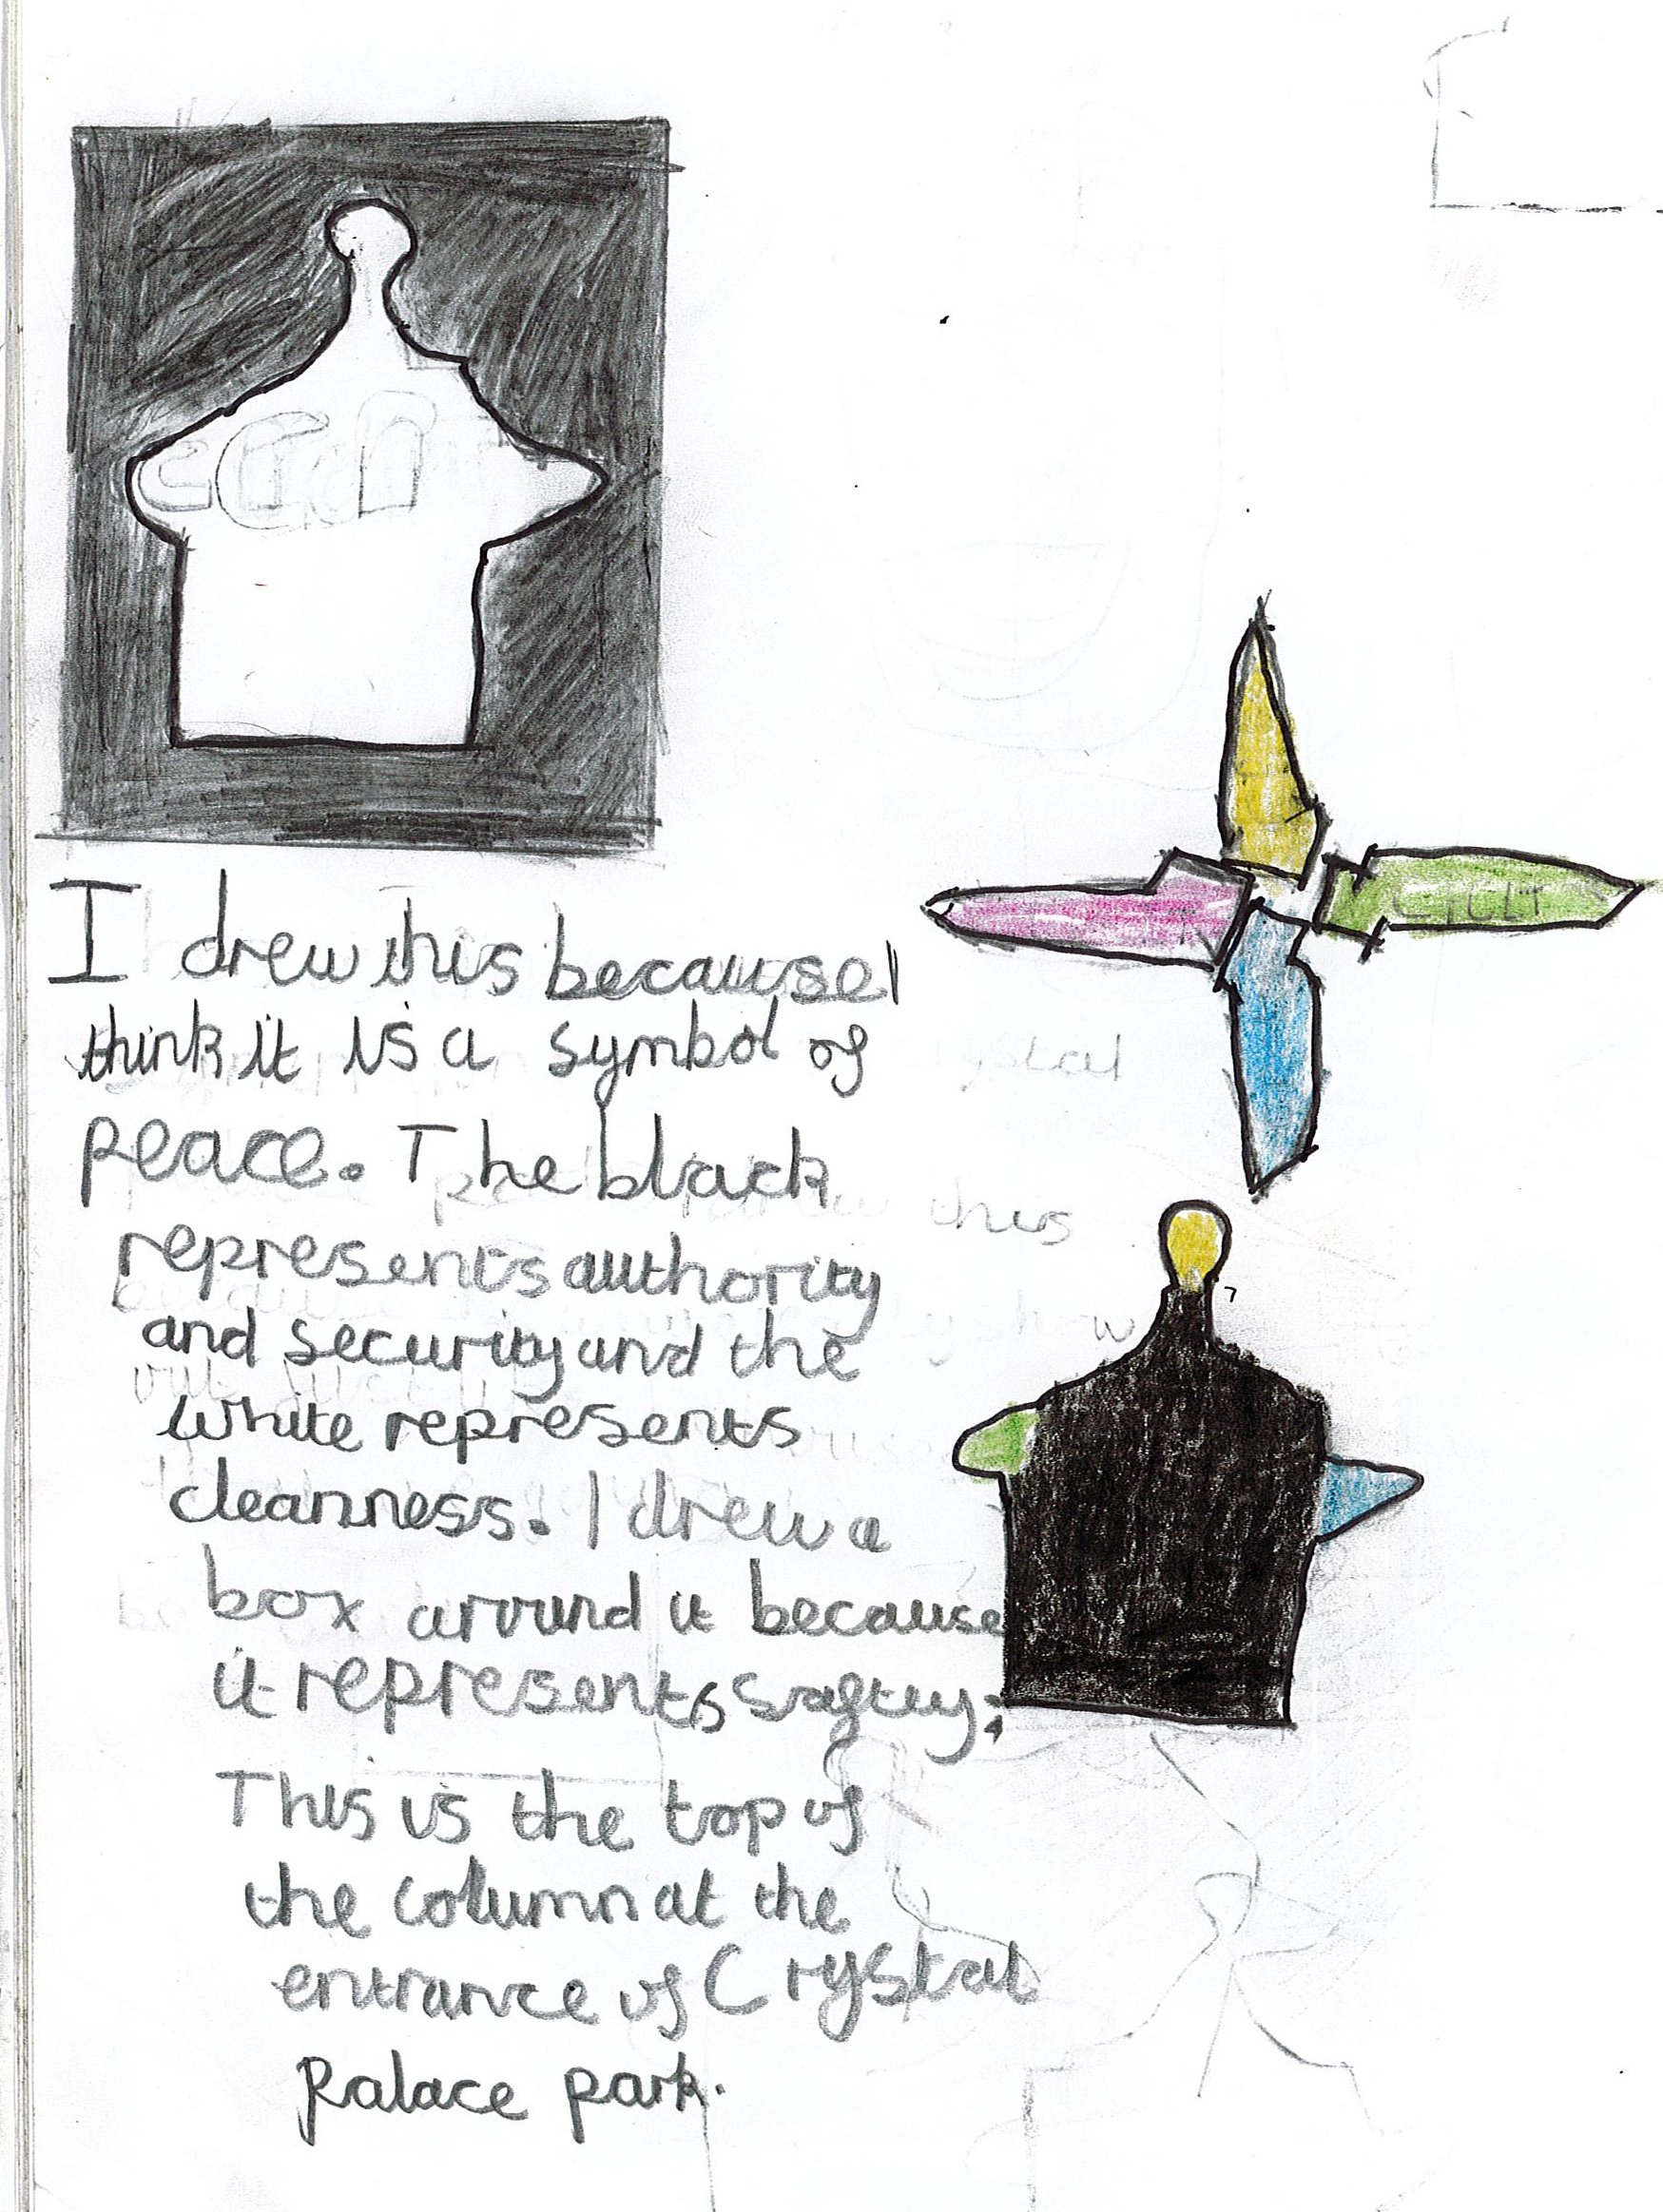 I drew this because I
think it is a symbol of
peace. The black
represents authority
and security and the
white represents
cleanness. I drew a
box around it because
it represents saftey.
This is the top of
the column at the
entrance of Crystal
Palace park.